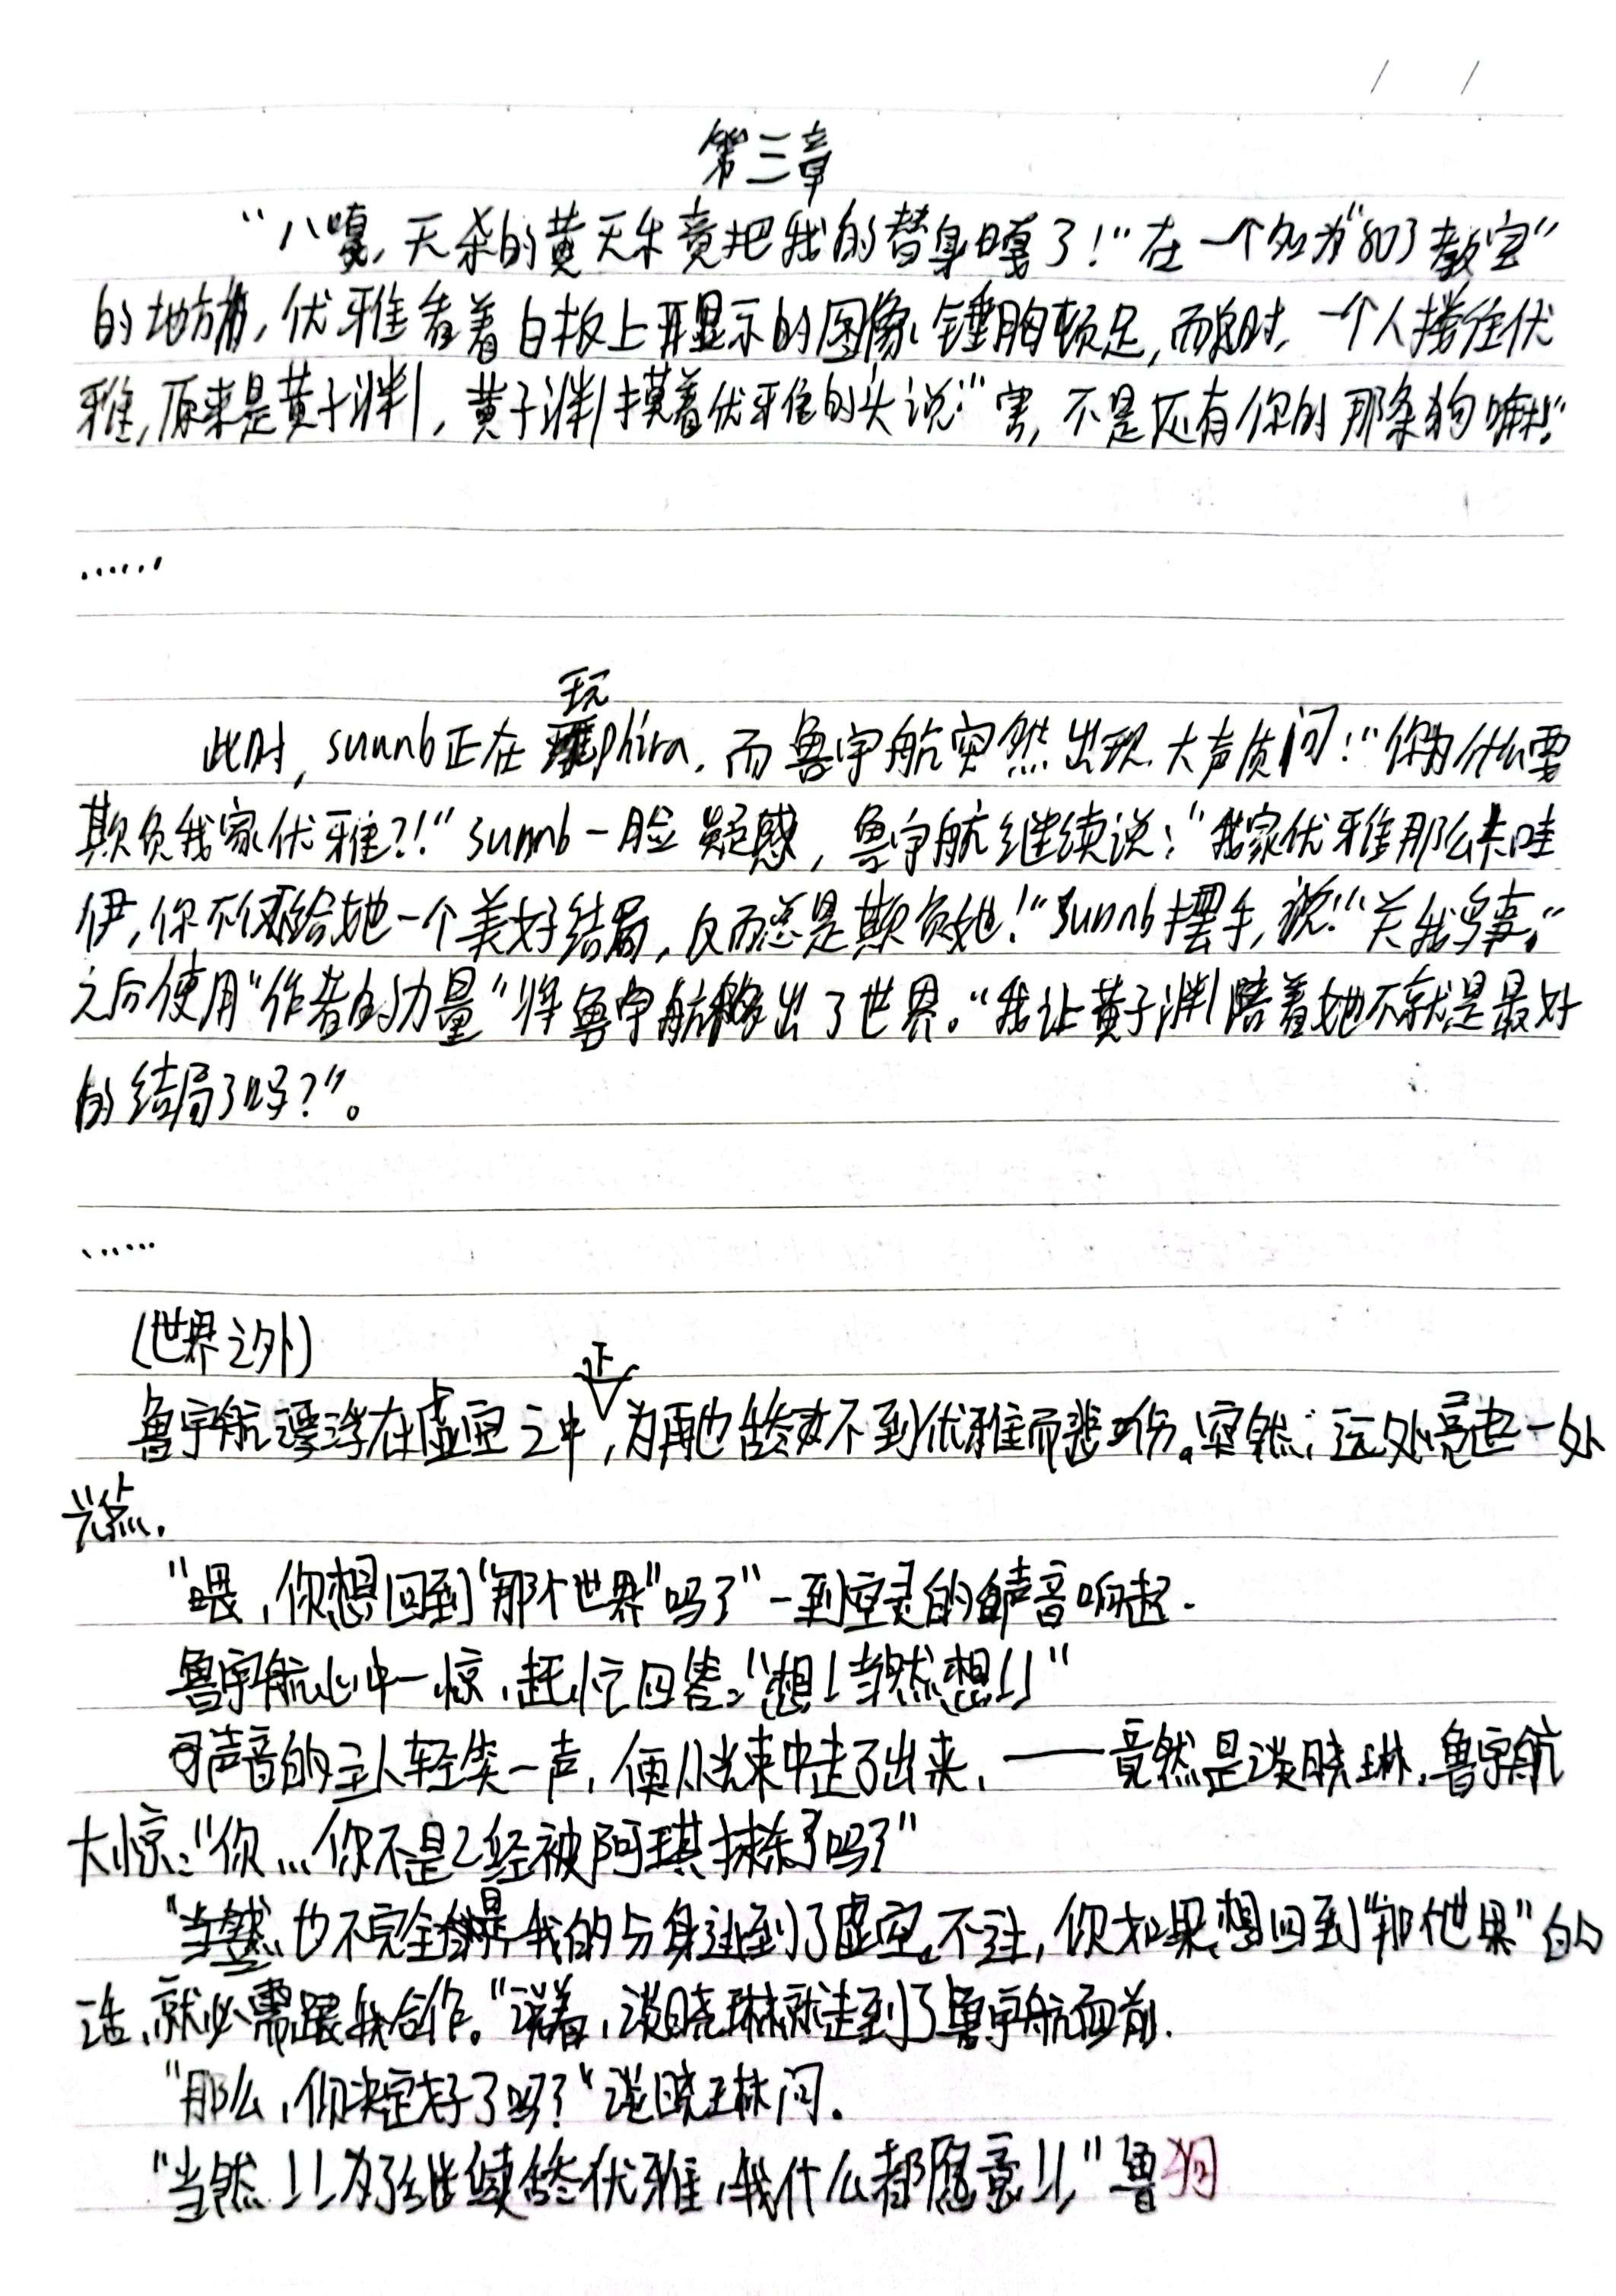 第三章
“八嘎，天杀的黄天朱竟把我的替身嘎了！”在一个名为“803教室”
的地方，优雅看着白板上显示的图像，锤胸顿足，而这时，一个人搂住优
雅，原来是黄子渊，黄子渊摸着优雅的头说：“害，不是还有你的那条狗嘛。”
……
此时，sunnb正在玩phira，而鲁宇航突然出现，大声质问：“你为什么要
欺负我家优雅？！”sunnb一脸疑惑，鲁宇航继续说：“我家优雅那么卡哇
伊，你不仅不给她一个美好结局，反而总是欺负她！”sunnb摆手，说：“关我屌事。”
之后使用“作者的力量”将鲁宇航移出了世界。“我让黄子渊陪着她不就是最好
的结局了吗？”。
……
(世界之外)
鲁宇航漂浮在虚空之中，正为再也舔不到优雅而悲伤。突然，远处亮起一处
光点.
“喂，你想回到“那个世界”吗？”一到空灵的声音响起.
鲁宇航心中一惊，赶忙回答：“想！当然想！！”
声音的主人轻笑一声，便从光束中走了出来，——竟然是谈晓琳，鲁宇航
大惊：“你…你不是已经被阿琪抹杀了吗？”
“当然，也不完全是我的分身逃到了虚空。不过，你如果想回到“那个世界”的
话，就必需跟我合作。”说着，谈晓琳就走到了鲁宇航面前.
“那么，你决定好了吗？”谈晓琳问.
“当然！！为了继续舔优雅，我什么都愿意！！”鲁狗